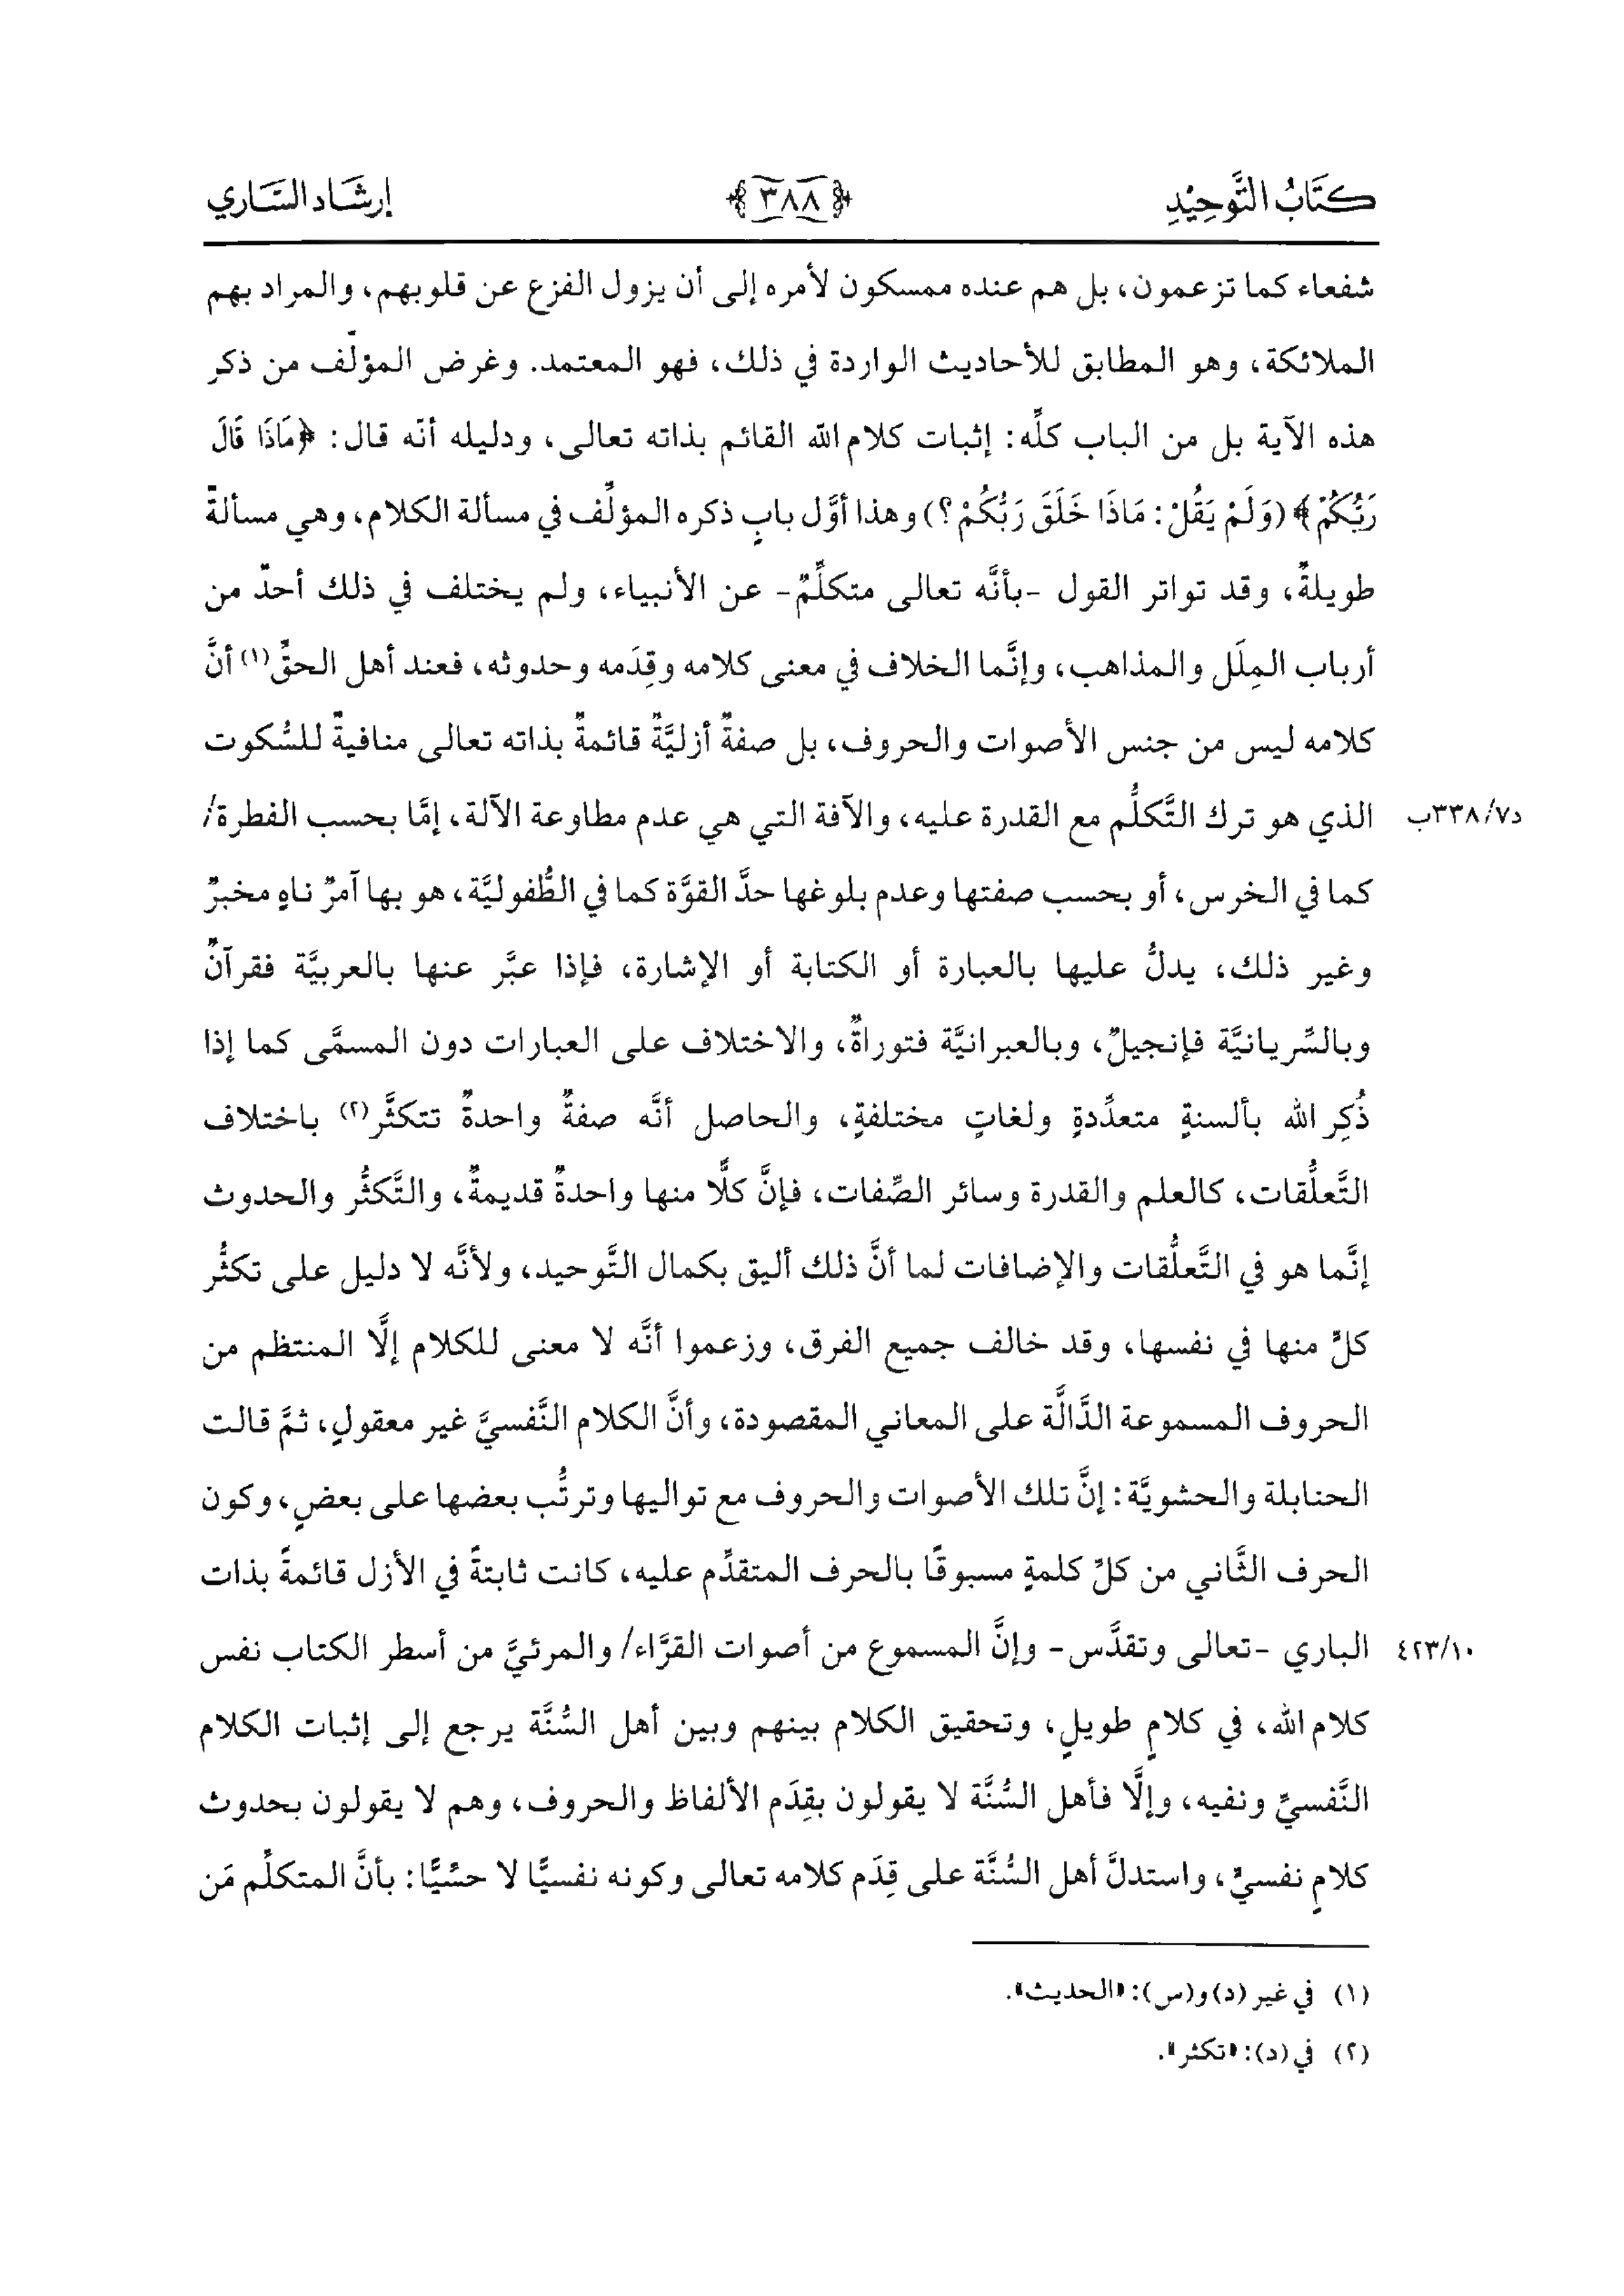 كِتَابُ التَّوحِيْدِ ٣٨٨ إرشَاد السَّاري
شفعاء كما تزعمون، بل هم عنده ممسكون لأمره إلى أن يزول الفزع عن قلوبهم، والمراد بهم
الملائكة، وهو المطابق للأحاديث الواردة في ذلك، فهو المعتمد. وغرض المؤلِّف من ذكر
هذه الآية بل من الباب كلِّه: إثبات كلام الله القائم بذاته تعالى، ودليله أنَّه قال: ﴿مَاذَا قَالَ
رَبُّكُمْ﴾ (وَلَمْ يَقُلْ: مَاذَا خَلَقَ رَبُّكُمْ؟) وهذا أوَّل بابٍ ذكره المؤلِّف في مسألة الكلام، وهي مسألةٌ
طويلةٌ، وقد تواتر القول -بأنَّه تعالى متكلِّمٌ- عن الأنبياء، ولم يختلف في ذلك أحدٌ من
أرباب المِلَل والمذاهب، وإنَّما الخلاف في معنى كلامه وقِدَمه وحدوثه، فعند أهل الحقِّ(١) أنَّ
كلامه ليس من جنس الأصوات والحروف، بل صفةٌ أزليَّةٌ قائمةٌ بذاته تعالى منافيةٌ للسُّكوت
الذي هو ترك التَّكلُّم مع القدرة عليه، والآفة التي هي عدم مطاوعة الآلة، إمَّا بحسب الفطرة/ د٧/٣٣٨ب
كما في الخرس، أو بحسب صفتها وعدم بلوغها حدَّ القوَّة كما في الطُّفوليَّة، هو بها آمرٌ ناهٍ مخبرٌ
وغير ذلك، يدلُّ عليها بالعبارة أو الكتابة أو الإشارة، فإذا عبَّر عنها بالعربيَّة فقرآنٌ
وبالسِّريانيَّة فإنجيلٌ، وبالعبرانيَّة فتوراةٌ، والاختلاف على العبارات دون المسمَّى كما إذا
ذُكِر الله بألسنةٍ متعدِّدةٍ ولغاتٍ مختلفةٍ، والحاصل أنَّه صفةٌ واحدةٌ تتكثَّر(٢) باختلاف
التَّعلُّقات، كالعلم والقدرة وسائر الصِّفات، فإنَّ كلًّا منها واحدةٌ قديمةٌ، والتَّكثُّر والحدوث
إنَّما هو في التَّعلُّقات والإضافات لما أنَّ ذلك أليق بكمال التَّوحيد، ولأنَّه لا دليل على تكثُّر
كلٍّ منها في نفسها، وقد خالف جميع الفرق، وزعموا أنَّه لا معنى للكلام إلَّا المنتظم من
الحروف المسموعة الدَّالَّة على المعاني المقصودة، وأنَّ الكلام النَّفسيَّ غير معقولٍ، ثمَّ قالت
الحنابلة والحشويَّة: إنَّ تلك الأصوات والحروف مع تواليها وترتُّب بعضها على بعضٍ، وكون
الحرف الثَّاني من كلِّ كلمةٍ مسبوقًا بالحرف المتقدِّم عليه، كانت ثابتةً في الأزل قائمةً بذات
الباري -تعالى وتقدَّس- وإنَّ المسموع من أصوات القرَّاء/ والمرئيَّ من أسطر الكتاب نفس ٤٢٣/١٠
كلام الله، في كلامٍ طويلٍ، وتحقيق الكلام بينهم وبين أهل السُّنَّة يرجع إلى إثبات الكلام
النَّفسيِّ ونفيه، وإلَّا فأهل السُّنَّة لا يقولون بقِدَم الألفاظ والحروف، وهم لا يقولون بحدوث
كلامٍ نفسيٍّ، واستدلَّ أهل السُّنَّة على قِدَم كلامه تعالى وكونه نفسيًّا لا حسِّيًّا: بأنَّ المتكلِّم مَن
(١) في غير (د) و(س): «الحديث».
(٢) في (د): «تكثر».